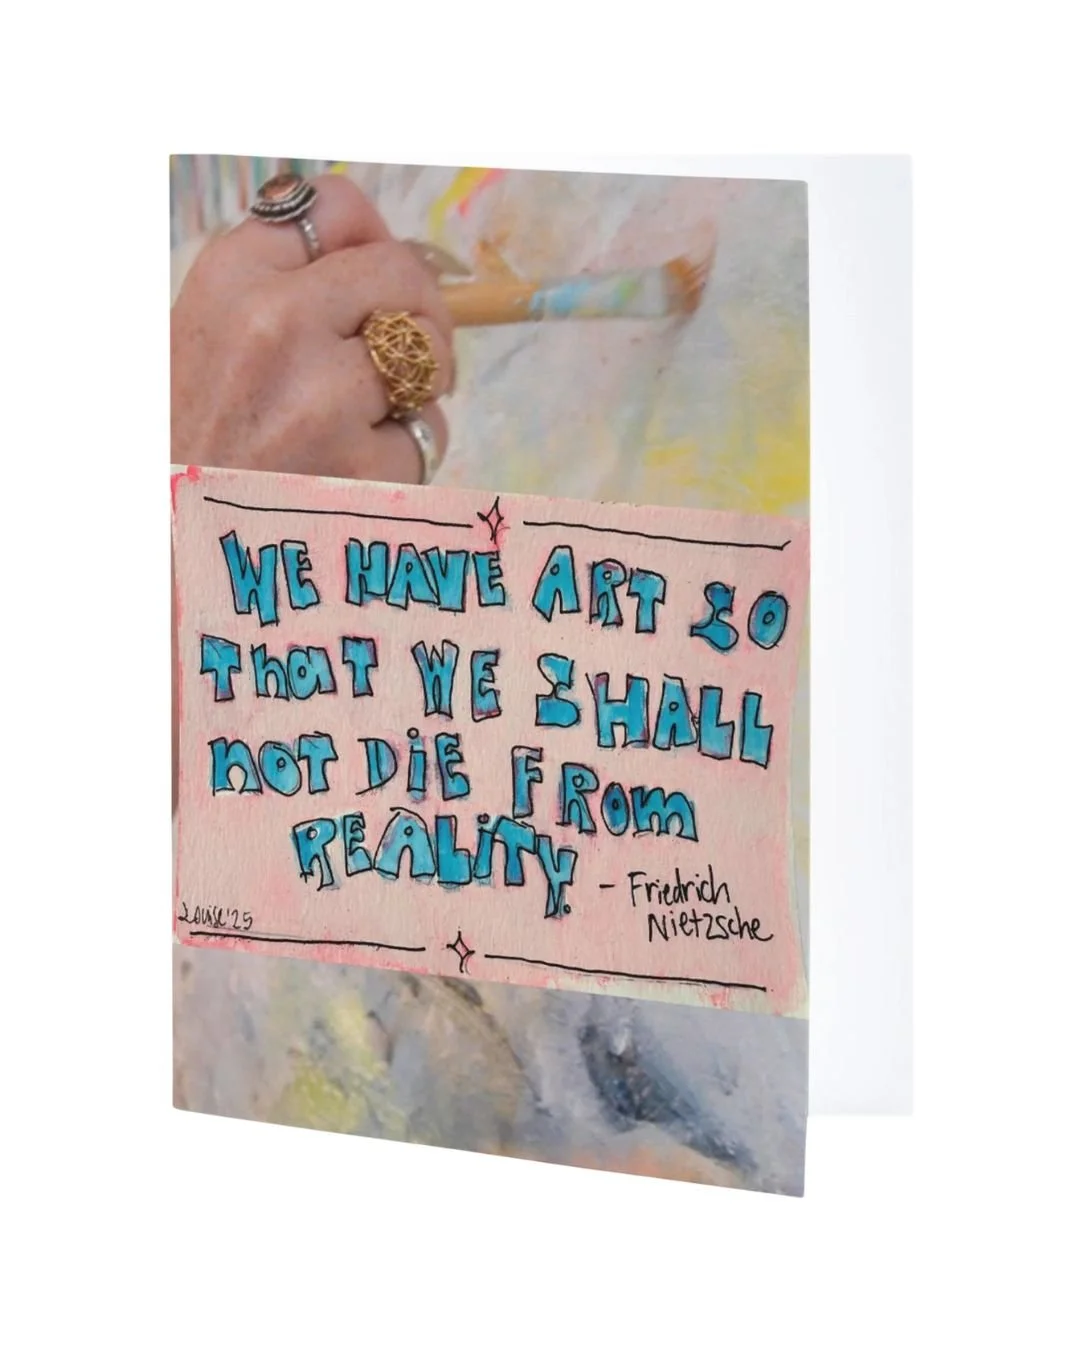 WE HAVE ART SO
ThaT WE SHALL
NOT DiE FROm
REALiTY.
- Friedrich
Nietzsche
Louise '25